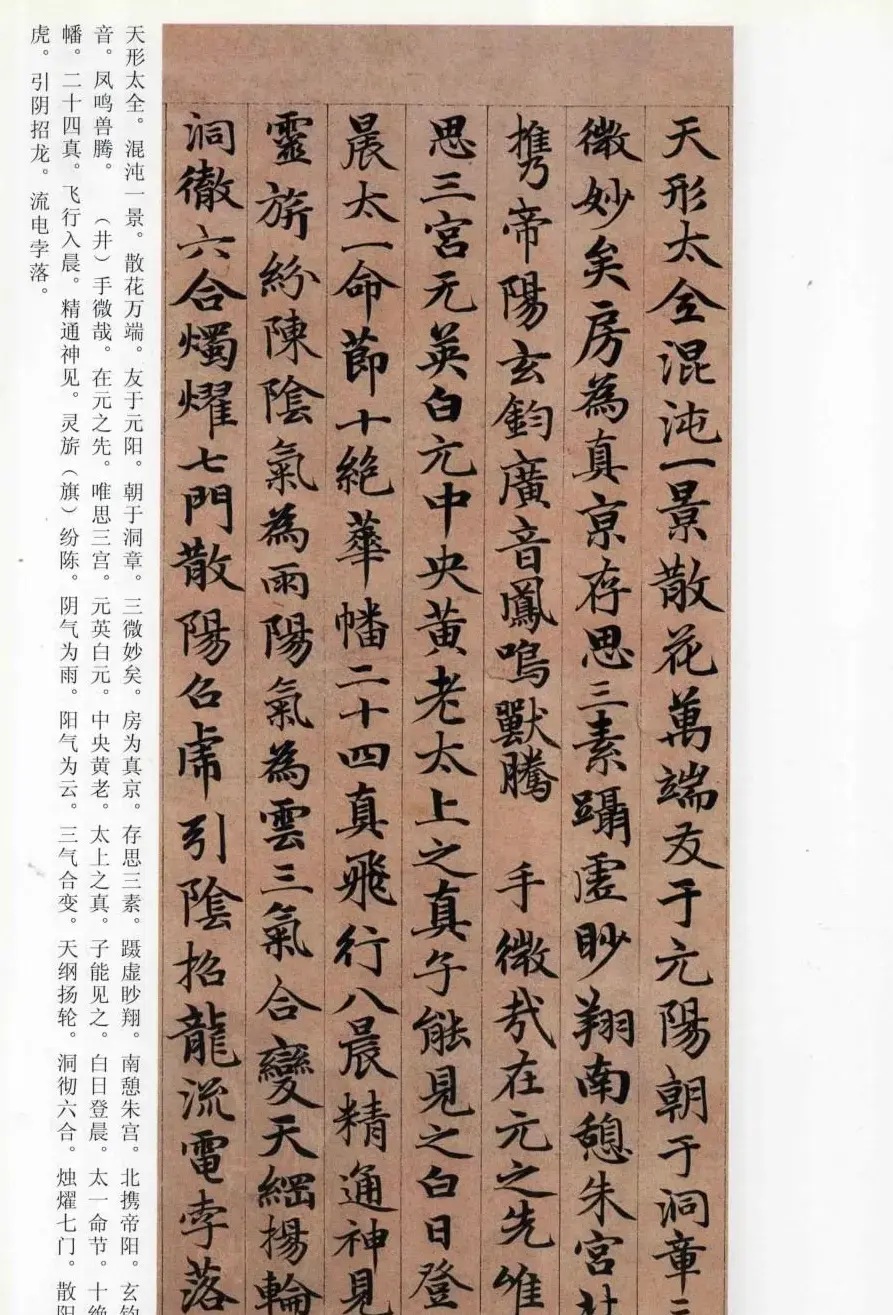 天形太全混沌一景散花萬端友于元陽朝于洞章三
微妙矣房為真京存思三素躡虛眇翔南憩朱宮北
攜帝陽玄鈞廣音鳳鳴獸騰 手微哉在元之先唯
思三宮元英白元中央黃老太上之真子能見之白日登
晨太一命節十絕華幡二十四真飛行入晨精通神見
靈旂紛陳陰氣為雨陽氣為雲三氣合變天綱揚輪
洞徹六合燭耀七門散陽召虎引陰招龍流電孛落
天形太全。混沌一景。散花万端。友于元阳。朝于洞章。三微妙矣。房为真京。存思三素。蹑虚眇翔。南憩朱宫。北携帝阳。玄钧
音。凤鸣兽腾。（井）手微哉。在元之先。唯思三宫。元英白元。中央黄老。太上之真。子能见之。白日登晨。太一命节。十绝
幡。二十四真。飞行入晨。精通神见。灵旂（旗）纷陈。阴气为雨。阳气为云。三气合变。天纲扬轮。洞彻六合。烛耀七门。散阳
虎。引阴招龙。流电孛落。